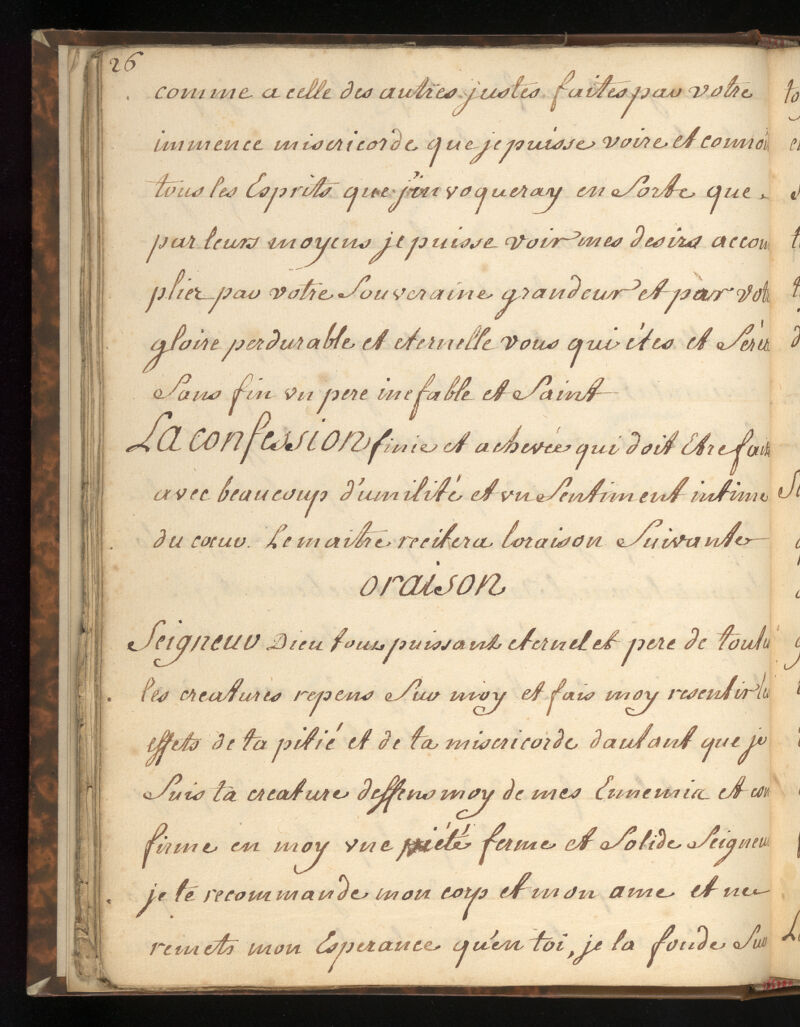 26
comme a celle des autres justes faites par votre
immence misericorde que je puisse voire et connoi
tous les Esprits que j'invoqueray en Sorte que
par leurs moyens je puisse voir mes desirs accom
plier par votre Souveraine grandeur et par vot
gloire perdurable et eternelle vous qui étes et Seréz
Sans fin vn pere inefable et Saint
La confession finie et achevée qui doit Etre fait
avec beaucoup d'umilité et vn Sentiment intime
du cœur. Le maitre recitera loraison Suivante
oraison
Seigneur Dieu tout puissant eternel et pere de toute
les creatures repens Sur moy et fais moy resentir les
effets de ta pitié et de ta misericorde dautant que je
Suis ta creature deffens moy de mes Ennemis et con
firme en moy vne piété ferme et Solide Seigneu
je te recommande mon corp et mon ame et ne
remets mon Esperance qu'en toi, je la fonde Sur